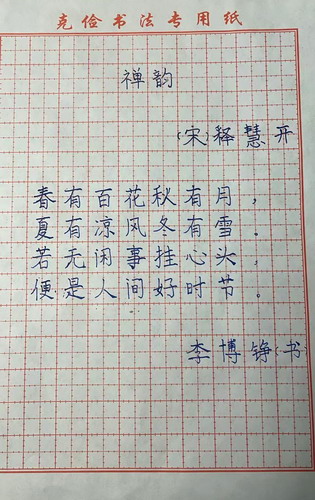 克伦书法专用纸
禅韵
(宋)释慧开
春有百花秋有月,
夏有凉风冬有雪.
若无闲事挂心头,
便是人间好时节。
李博铮书